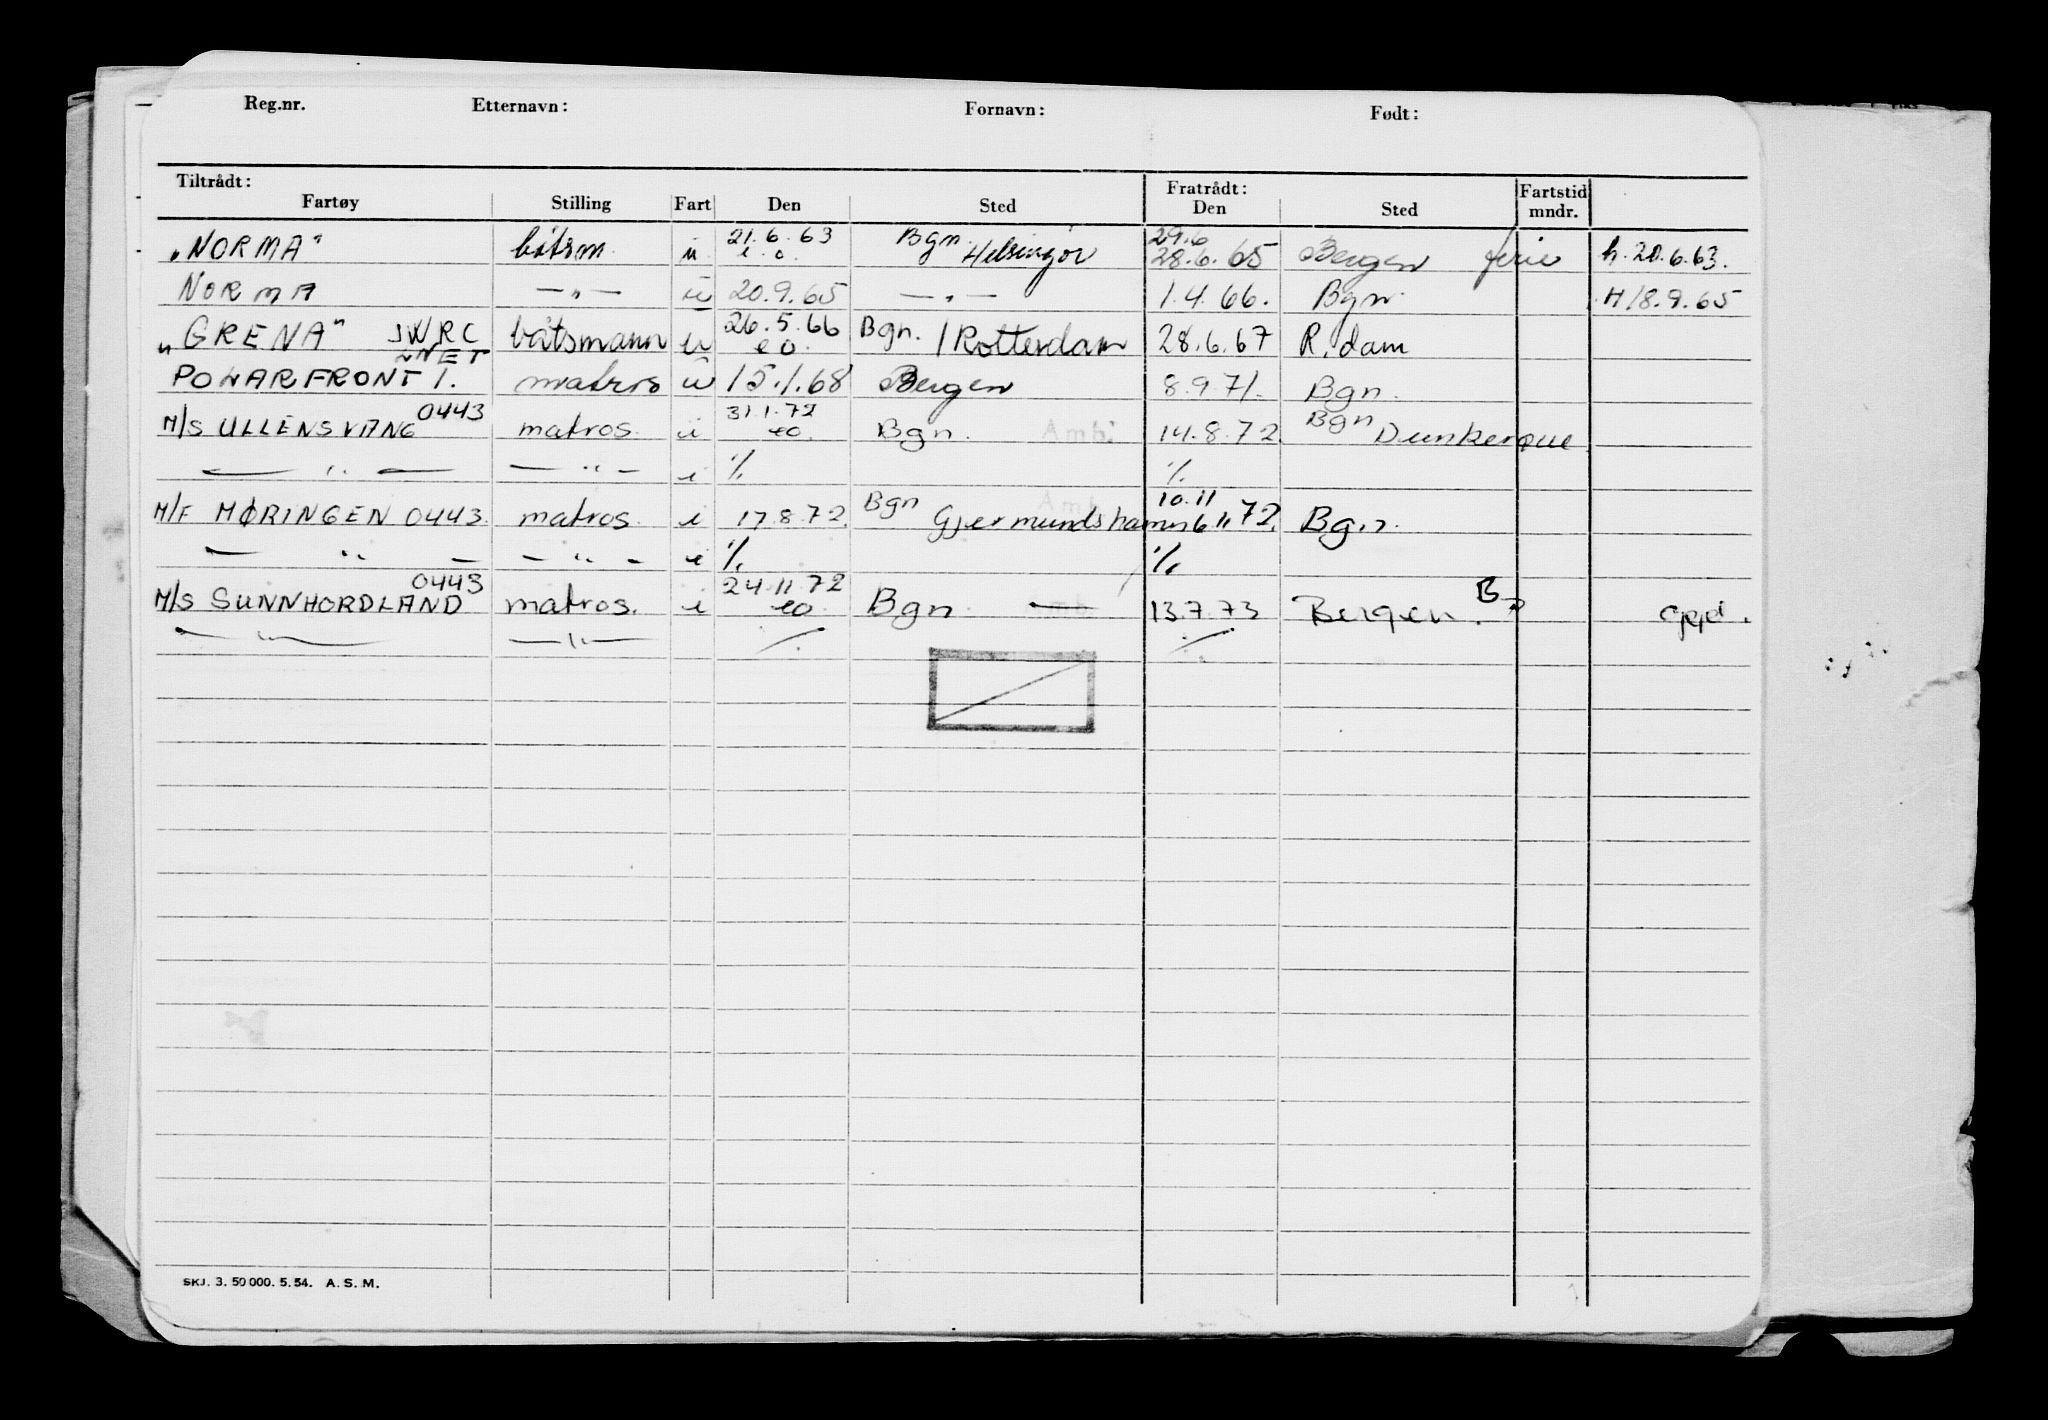 Reg.nr. Etternavn: Fornavn: Født:
Tiltrådt: Fratrådt: Fartstid
Fartøy Stilling Fart Den Sted Den Sted mndr.
21.6.63 Bgn. 29.6
„NORMA" båtsm. u e.o. Helsingør 28.6.65 Bergen ferie h. 20.6.63.
NORMA — „ — u 20.9.65 — „ — 1.4.66. Bgn. H 18.9.65
26.5.66
„GRENA" JWRC båtsmann u e o Bgn. / Rotterdam 28.6.67 R.dam
LNET
POLARFRONT I. matros u 15.1.68 Bergen 8.9.71. Bgn.
0443 31.1.72 Bgn
M/S ULLENSVANG matros. i eo. Bgn. Amb. 14.8.72. Dunkerque
— " — — " — i ./. ./.
Bgn Amb. 10.11
M/F MØRINGEN 0443. matros. i 17.8.72. Gjermundshamn 6 11 72. Bgn.
— " — — " — i ./. ./.
0443 24.11.72
M/S SUNNHORDLAND matros. i eo. Bgn. — Amb. 13.7.73 Bergen. B oppd.
— " — — " — ./. ./.
SKJ. 3. 50 000. 5. 54. A. S. M.